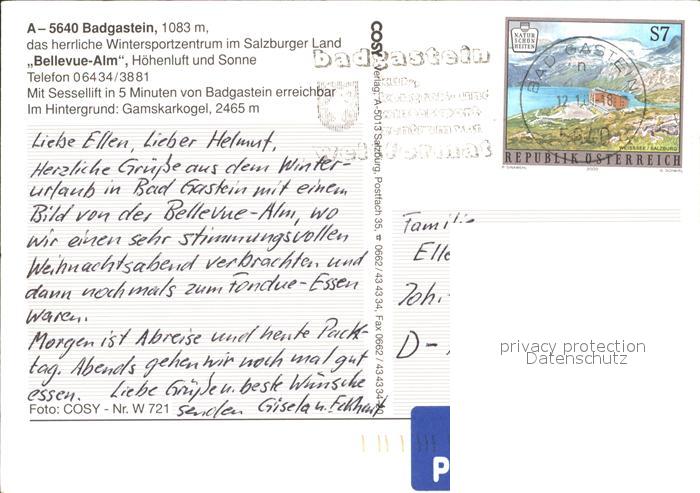 A – 5640 Badgastein, 1083 m,
das herrliche Wintersportzentrum im Salzburger Land
„Bellevue-Alm", Höhenluft und Sonne
Telefon 06434/3881
Mit Sessellift in 5 Minuten von Badgastein erreichbar
Im Hintergrund: Gamskarkogel, 2465 m
Liebe Ellen, Lieber Helmut,
Herzliche Grüße aus dem Winter-
urlaub in Bad Gastein mit einem
Bild von der Bellevue-Alm, wo
wir einen sehr stimmungsvollen
Weihnachtsabend verbrachten und
dann nochmals zum Fondue-Essen
waren.
Morgen ist Abreise und heute Pack-
tag. Abends gehen wir noch mal gut
essen. Liebe Grüße u. beste Wünsche
senden Gisela u. Eckhart
Foto: COSY - Nr. W 721
COSY Verlag, A-5013 Salzburg, Postfach 35, ☎ 0662/43 43 34, Fax 0662/43 43 34
badgastein
weltformat
NATUR
SCHÖN
HEITEN
S7
BAD GASTEIN
5640
WEISSSEE / SALZBURG
REPUBLIK ÖSTERREICH
2000
Familie
Elle
Joh
D-
privacy protection
Datenschutz
P